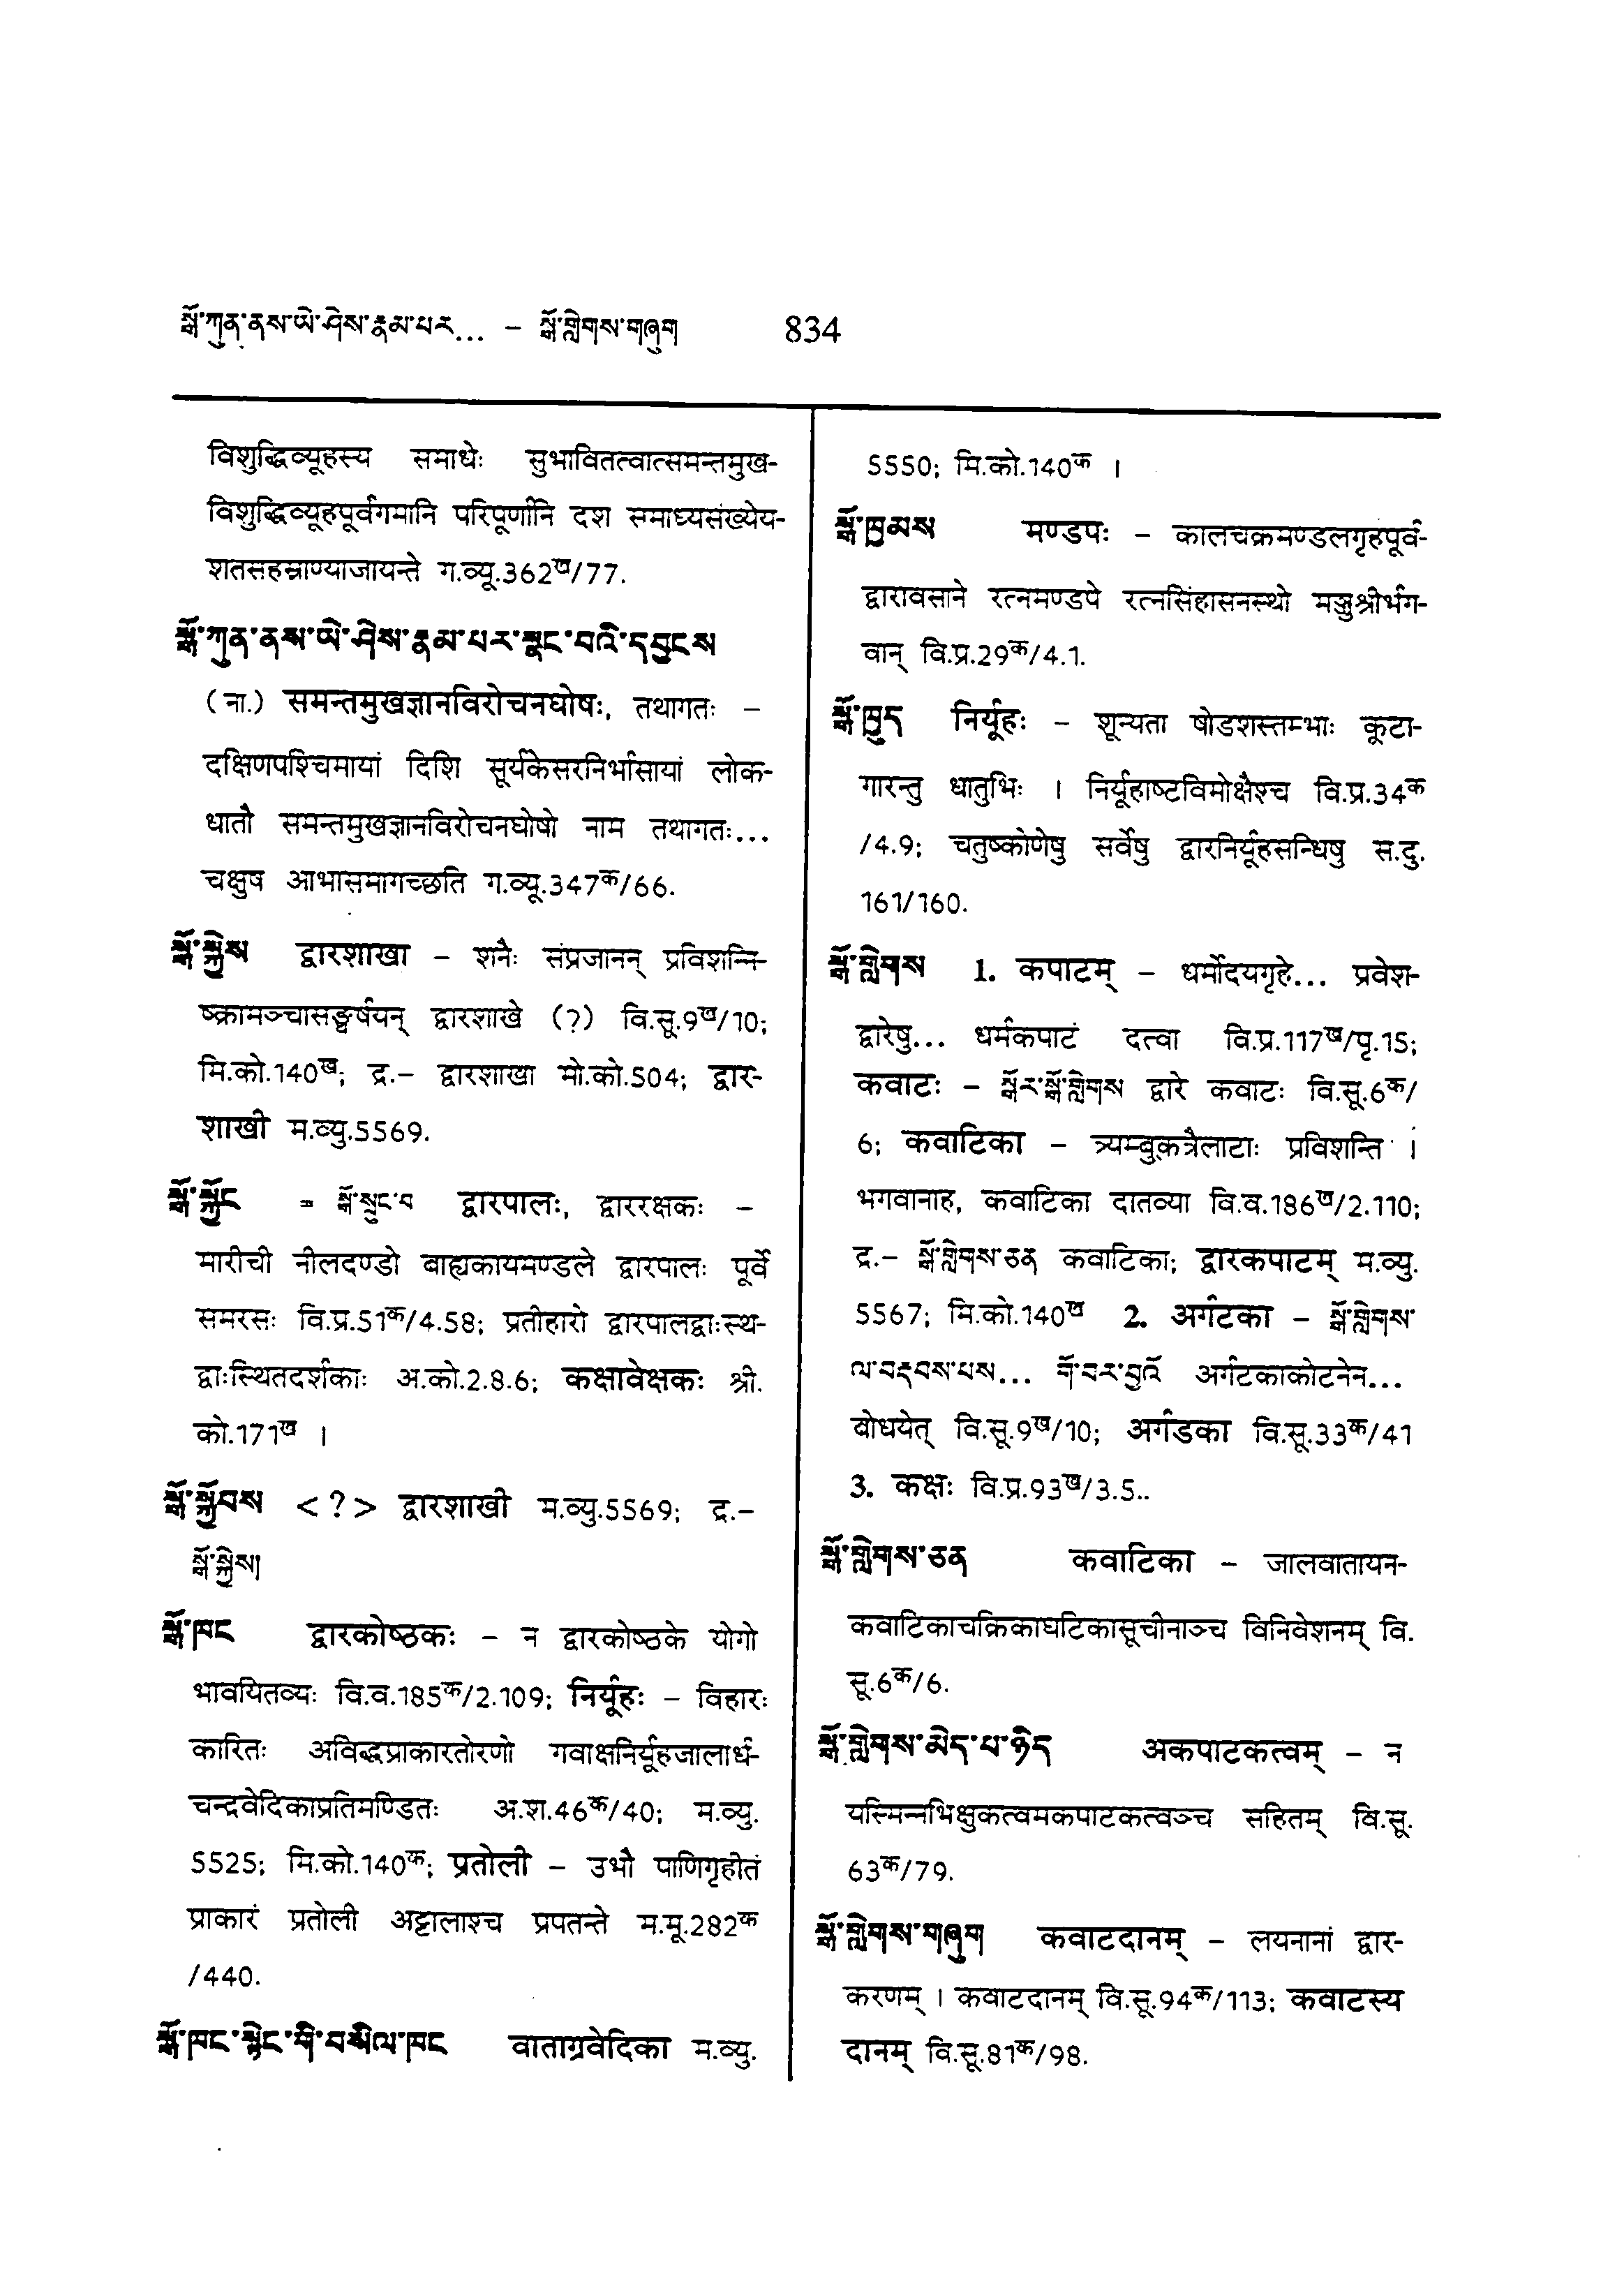 སྒོ་ཀུན་ནས་ཡེ་ཤེས་རྣམ་པར... – སྒོ་གླེགས་གཞུག 834
विशुद्धिव्यूहस्य समाधेः सुभावितत्वात्समन्तमुख-
विशुद्धिव्यूहपूर्वगमानि परिपूर्णानि दश समाध्यसंख्येय-
शतसहस्राण्याजायन्ते ग.व्यू.362ख/77.
སྒོ་ཀུན་ནས་ཡེ་ཤེས་རྣམ་པར་སྣང་བའི་དབྱངས
(ना.) समन्तमुखज्ञानविरोचनघोषः, तथागतः –
दक्षिणपश्चिमायां दिशि सूर्यकेसरनिर्भासायां लोक-
धातौ समन्तमुखज्ञानविरोचनघोषो नाम तथागतः...
चक्षुष आभासमागच्छति ग.व्यू.347क/66.
སྒོ་སྐྱེས द्वारशाखा – शनैः संप्रजानन् प्रविशन्नि-
ष्क्रामञ्चासङ्घर्षयन् द्वारशाखे (?) वि.सू.9ख/10;
मि.को.140ख; द्र.– द्वारशाखा मो.को.504; द्वार-
शाखी म.व्यु.5569.
སྒོ་སྐྱོང = སྒོ་སྲུང་བ द्वारपालः, द्वाररक्षकः –
मारीची नीलदण्डो बाह्यकायमण्डले द्वारपालः पूर्वे
समरसः वि.प्र.51क/4.58; प्रतीहारो द्वारपालद्वाःस्थ-
द्वाःस्थितदर्शकाः अ.को.2.8.6; कक्षावेक्षकः श्री.
को.171ख ।
སྒོ་སྐྱོབས <?> द्वारशाखी म.व्यु.5569; द्र.–
སྒོ་སྐྱེས།
སྒོ་ཁང द्वारकोष्ठकः – न द्वारकोष्ठके योगो
भावयितव्यः वि.व.185क/2.109; निर्यूहः – विहारः
कारितः अविद्धप्राकारतोरणो गवाक्षनिर्यूहजालार्ध-
चन्द्रवेदिकाप्रतिमण्डितः अ.श.46क/40; म.व्यु.
5525; मि.को.140क; प्रतोली – उभौ पाणिगृहीतं
प्राकारं प्रतोली अट्टालाश्च प्रपतन्ते म.मू.282क
/440.
སྒོ་ཁང་སྟེང་གི་བསིལ་ཁང वाताग्रवेदिका म.व्यु.
5550; मि.को.140क ।
སྒོ་ཁྱམས मण्डपः – कालचक्रमण्डलगृहपूर्व-
द्वारावसाने रत्नमण्डपे रत्नसिंहासनस्थो मञ्जुश्रीर्भग-
वान् वि.प्र.29क/4.1.
སྒོ་ཁྱུད निर्यूहः – शून्यता षोडशस्तम्भाः कूटा-
गारन्तु धातुभिः । निर्यूहाष्टविमोक्षैश्च वि.प्र.34क
/4.9; चतुष्कोणेषु सर्वेषु द्वारनिर्यूहसन्धिषु स.दु.
161/160.
སྒོ་གླེགས 1. कपाटम् – धर्मोदयगृहे... प्रवेश-
द्वारेषु... धर्मकपाटं दत्वा वि.प्र.117ख/पृ.15;
कवाटः – སྒོར་སྒོ་གླེགས द्वारे कवाटः वि.सू.6क/
6; कवाटिका – त्र्यम्बुकत्रैलाटाः प्रविशन्ति ।
भगवानाह, कवाटिका दातव्या वि.व.186ख/2.110;
द्र.– སྒོ་གླེགས་ཅན कवाटिका; द्वारकपाटम् म.व्यु.
5567; मि.को.140ख 2. अर्गटका – སྒོ་གླེགས་
ལ་བརྡབས་པས... གོ་བར་བྱའོ अर्गटकाकोटनेन...
बोधयेत् वि.सू.9ख/10; अर्गडका वि.सू.33क/41
3. कक्षः वि.प्र.93ख/3.5..
སྒོ་གླེགས་ཅན कवाटिका – जालवातायन-
कवाटिकाचक्रिकाघटिकासूचीनाञ्च विनिवेशनम् वि.
सू.6क/6.
སྒོ་གླེགས་མེད་པ་ཉིད अकपाटकत्वम् – न
यस्मिन्नभिक्षुकत्वमकपाटकत्वञ्च सहितम् वि.सू.
63क/79.
སྒོ་གླེགས་གཞུག कवाटदानम् – लयनानां द्वार-
करणम् । कवाटदानम् वि.सू.94क/113; कवाटस्य
दानम् वि.सू.81क/98.